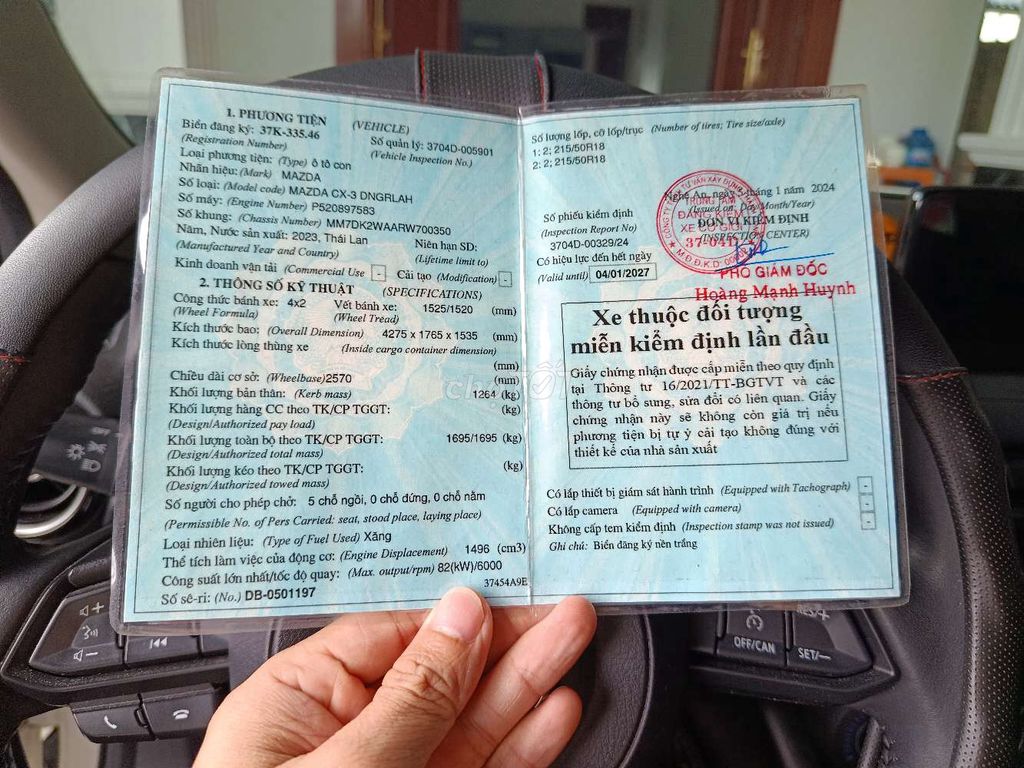 1. PHƯƠNG TIỆN (VEHICLE)
Biển đăng ký: 37K-335.46 Số quản lý: 3704D-005901
(Registration Number) (Vehicle Inspection No.)
Loại phương tiện: (Type) ô tô con
Nhãn hiệu: (Mark) MAZDA
Số loại: (Model code) MAZDA CX-3 DNGRLAH
Số máy: (Engine Number) P520897583
Số khung: (Chassis Number) MM7DK2WAARW700350
Năm, Nước sản xuất: 2023, Thái Lan Niên hạn SD:
(Manufactured Year and Country) (Lifetime limit to)
Kinh doanh vận tải (Commercial Use) - Cải tạo (Modification) -
2. THÔNG SỐ KỸ THUẬT (SPECIFICATIONS)
Công thức bánh xe: 4x2 Vết bánh xe: 1525/1520 (mm)
(Wheel Formula) (Wheel Tread)
Kích thước bao: (Overall Dimension) 4275 x 1765 x 1535 (mm)
Kích thước lòng thùng xe (Inside cargo container dimension)
(mm)
Chiều dài cơ sở: (Wheelbase) 2570 (mm)
Khối lượng bản thân: (Kerb mass) 1264 (kg)
Khối lượng hàng CC theo TK/CP TGGT: (kg)
(Design/Authorized pay load)
Khối lượng toàn bộ theo TK/CP TGGT: 1695/1695 (kg)
(Design/Authorized total mass)
Khối lượng kéo theo TK/CP TGGT: (kg)
(Design/Authorized towed mass)
Số người cho phép chở: 5 chỗ ngồi, 0 chỗ đứng, 0 chỗ nằm
(Permissible No. of Pers Carried: seat, stood place, laying place)
Loại nhiên liệu: (Type of Fuel Used) Xăng
Thể tích làm việc của động cơ: (Engine Displacement) 1496 (cm3)
Công suất lớn nhất/tốc độ quay: (Max. output/rpm) 82(kW)/6000
37454A9E
Số sê-ri: (No.) DB-0501197
Số lượng lốp, cỡ lốp/trục (Number of tires; Tire size/axle)
1; 2; 215/50R18
2; 2; 215/50R18
Nghệ An, ngày 5 tháng 1 năm 2024
(Issued on: Day/Month/Year)
Số phiếu kiểm định ĐƠN VỊ KIỂM ĐỊNH
(Inspection Report No) (INSPECTION CENTER)
3704D-00329/24
TRUNG TÂM
ĐĂNG KIỂM
XE CƠ GIỚI
37-04D
Có hiệu lực đến hết ngày
(Valid until) 04/01/2027
PHÓ GIÁM ĐỐC
Hoàng Mạnh Huynh
Xe thuộc đối tượng
miễn kiểm định lần đầu
Giấy chứng nhận được cấp miễn theo quy định
tại Thông tư 16/2021/TT-BGTVT và các
thông tư bổ sung, sửa đổi có liên quan. Giấy
chứng nhận này sẽ không còn giá trị nếu
phương tiện bị tự ý cải tạo không đúng với
thiết kế của nhà sản xuất
Có lắp thiết bị giám sát hành trình (Equipped with Tachograph) -
Có lắp camera (Equipped with camera) -
Không cấp tem kiểm định (Inspection stamp was not issued) -
Ghi chú: Biển đăng ký nền trắng
chợTỐT
OFF/CAN
RES/+
SET/−